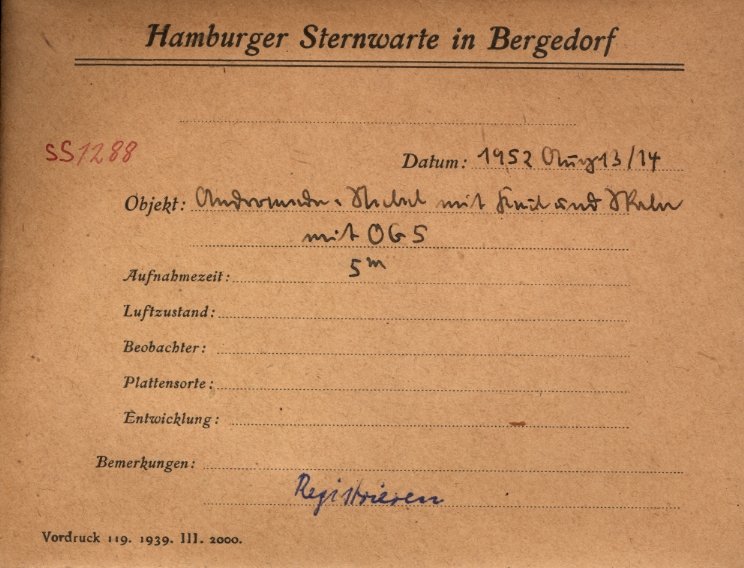 Hamburger Sternwarte in Bergedorf
SS1288
Datum: 1952 Aug 13/14
Objekt: Andromeda-Nebel mit Keil und Skala
mit OG5
Aufnahmezeit: 5m
Luftzustand:
Beobachter:
Plattensorte:
Entwicklung:
Bemerkungen:
Registrieren
Vordruck 119. 1939. III. 2000.